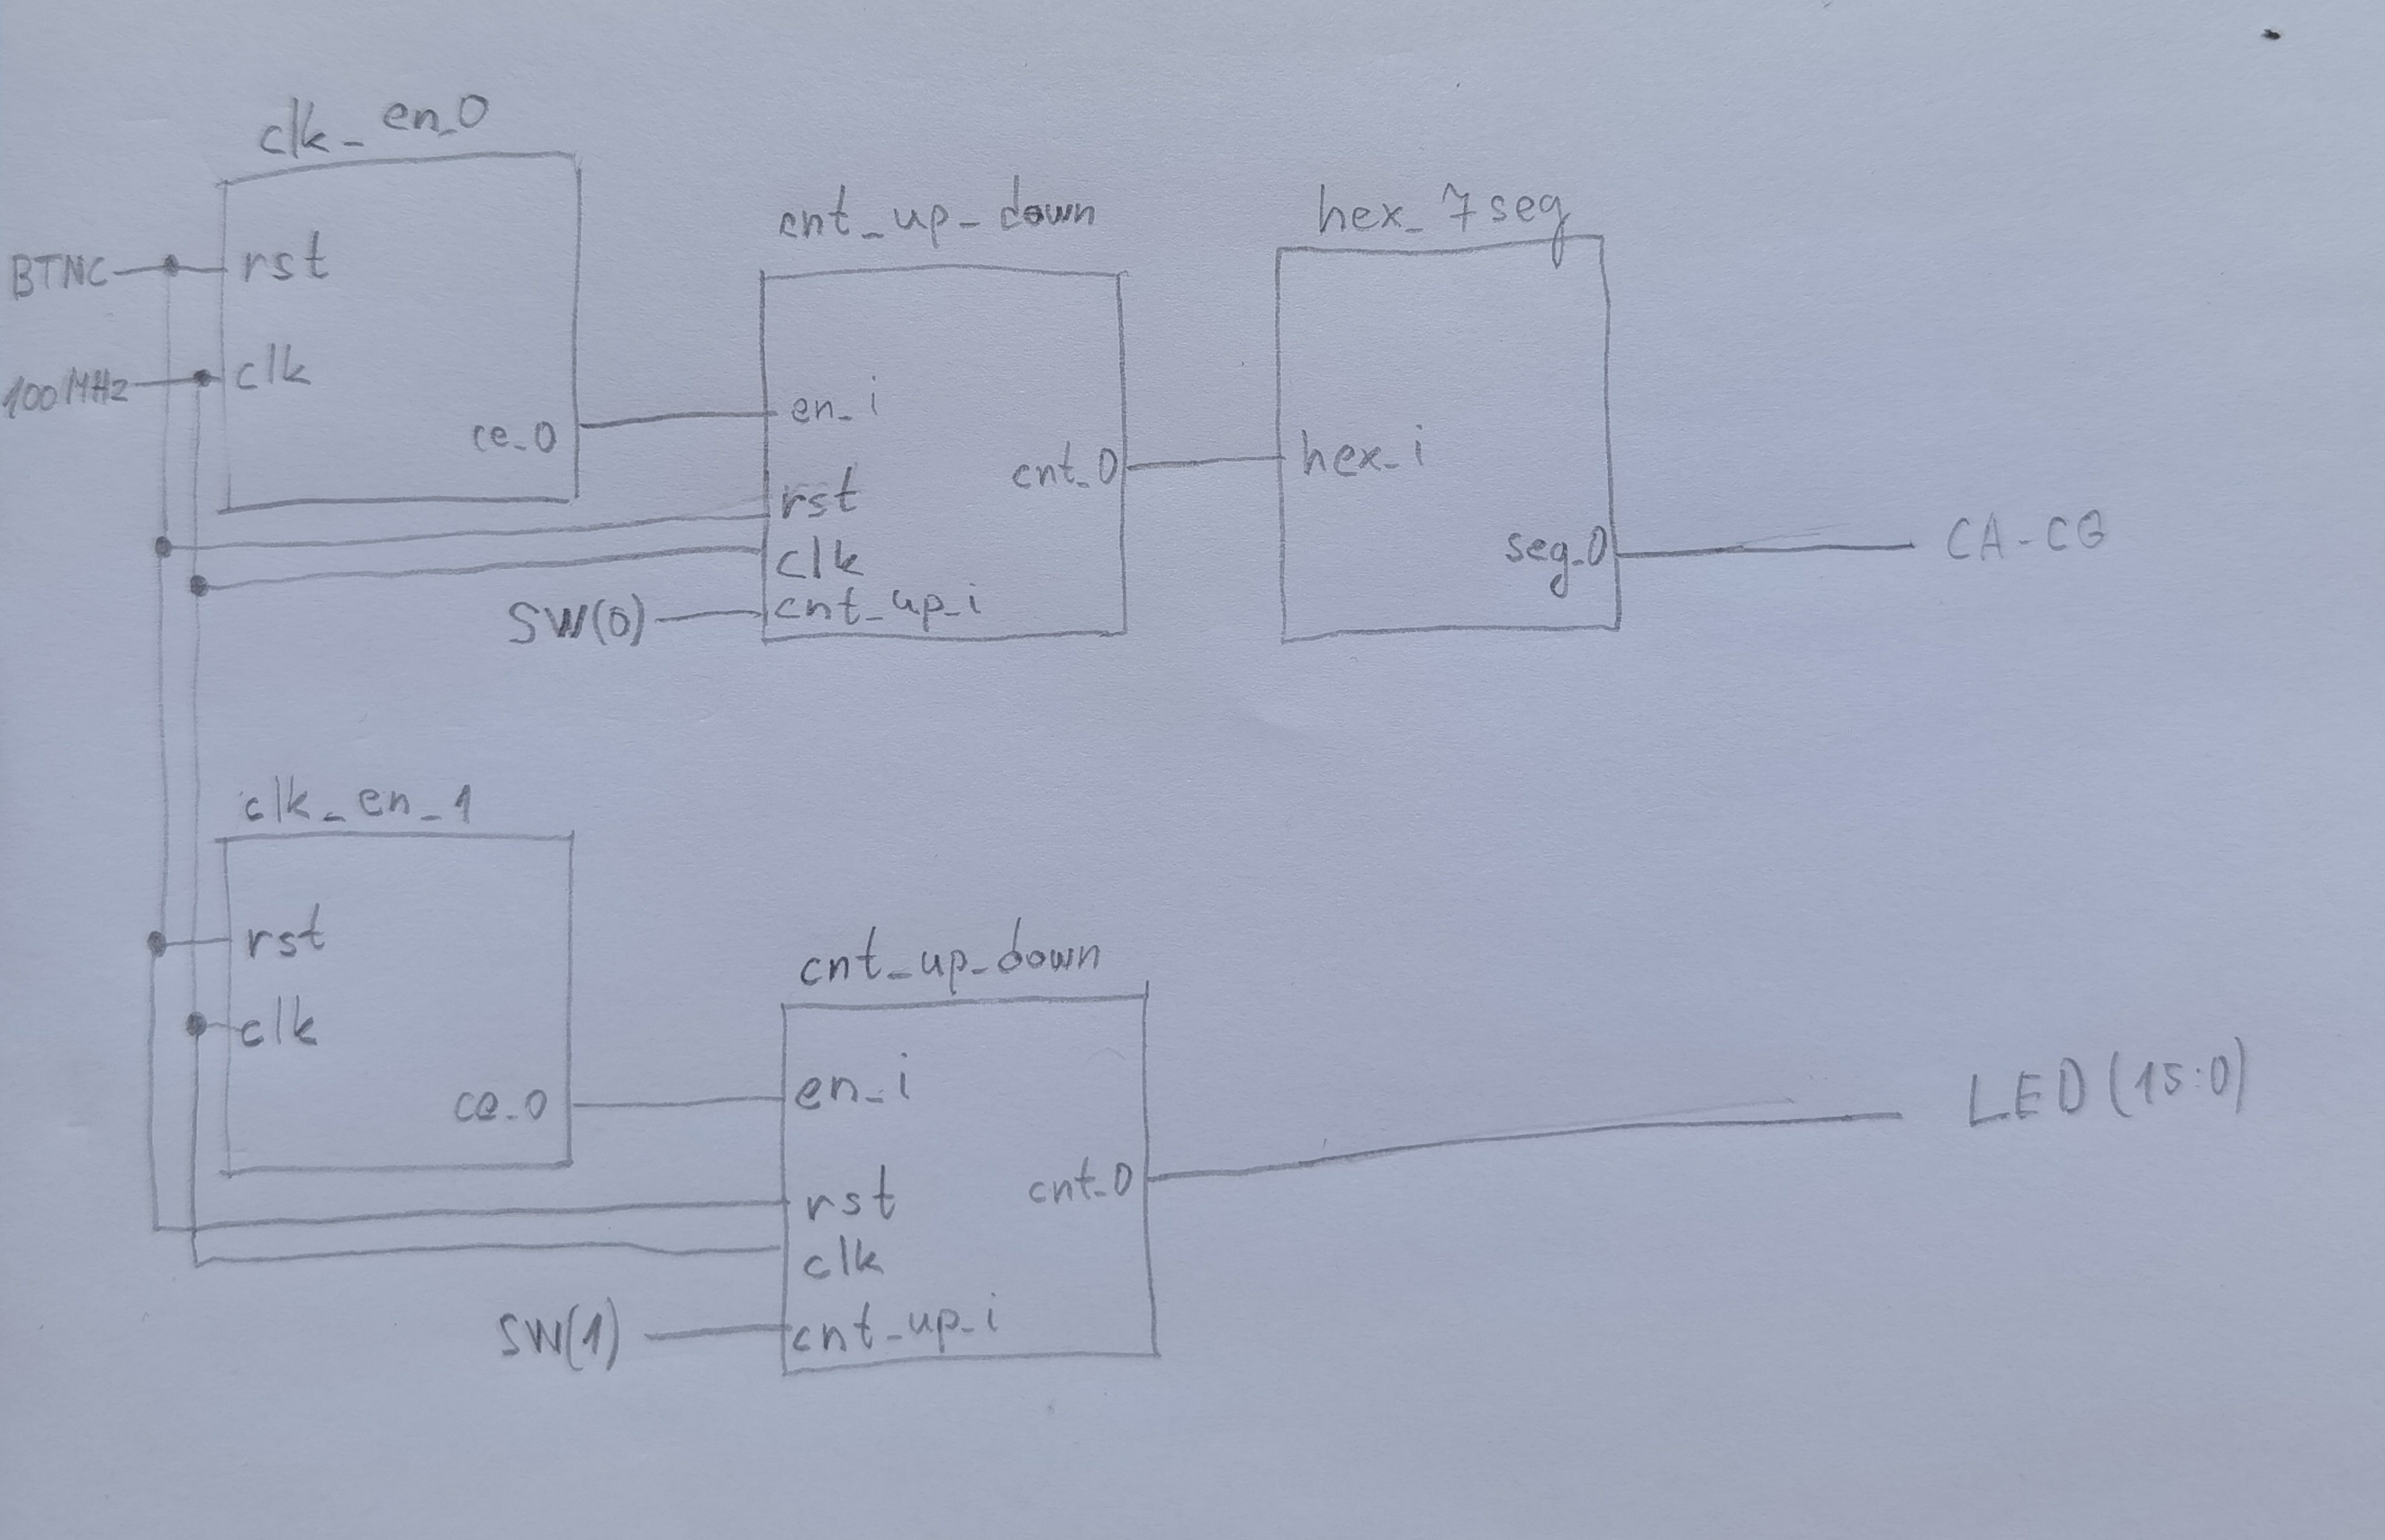 clk_en_0
BTNC
rst
100MHz
clk
ce_0
cnt_up_down
en_i
rst
clk
cnt_up_i
cnt_0
SW(0)
hex_7seg
hex_i
seg_0
CA-CG
clk_en_1
rst
clk
ce_0
cnt_up_down
en_i
rst
clk
cnt_up_i
cnt_0
SW(1)
LED(15:0)